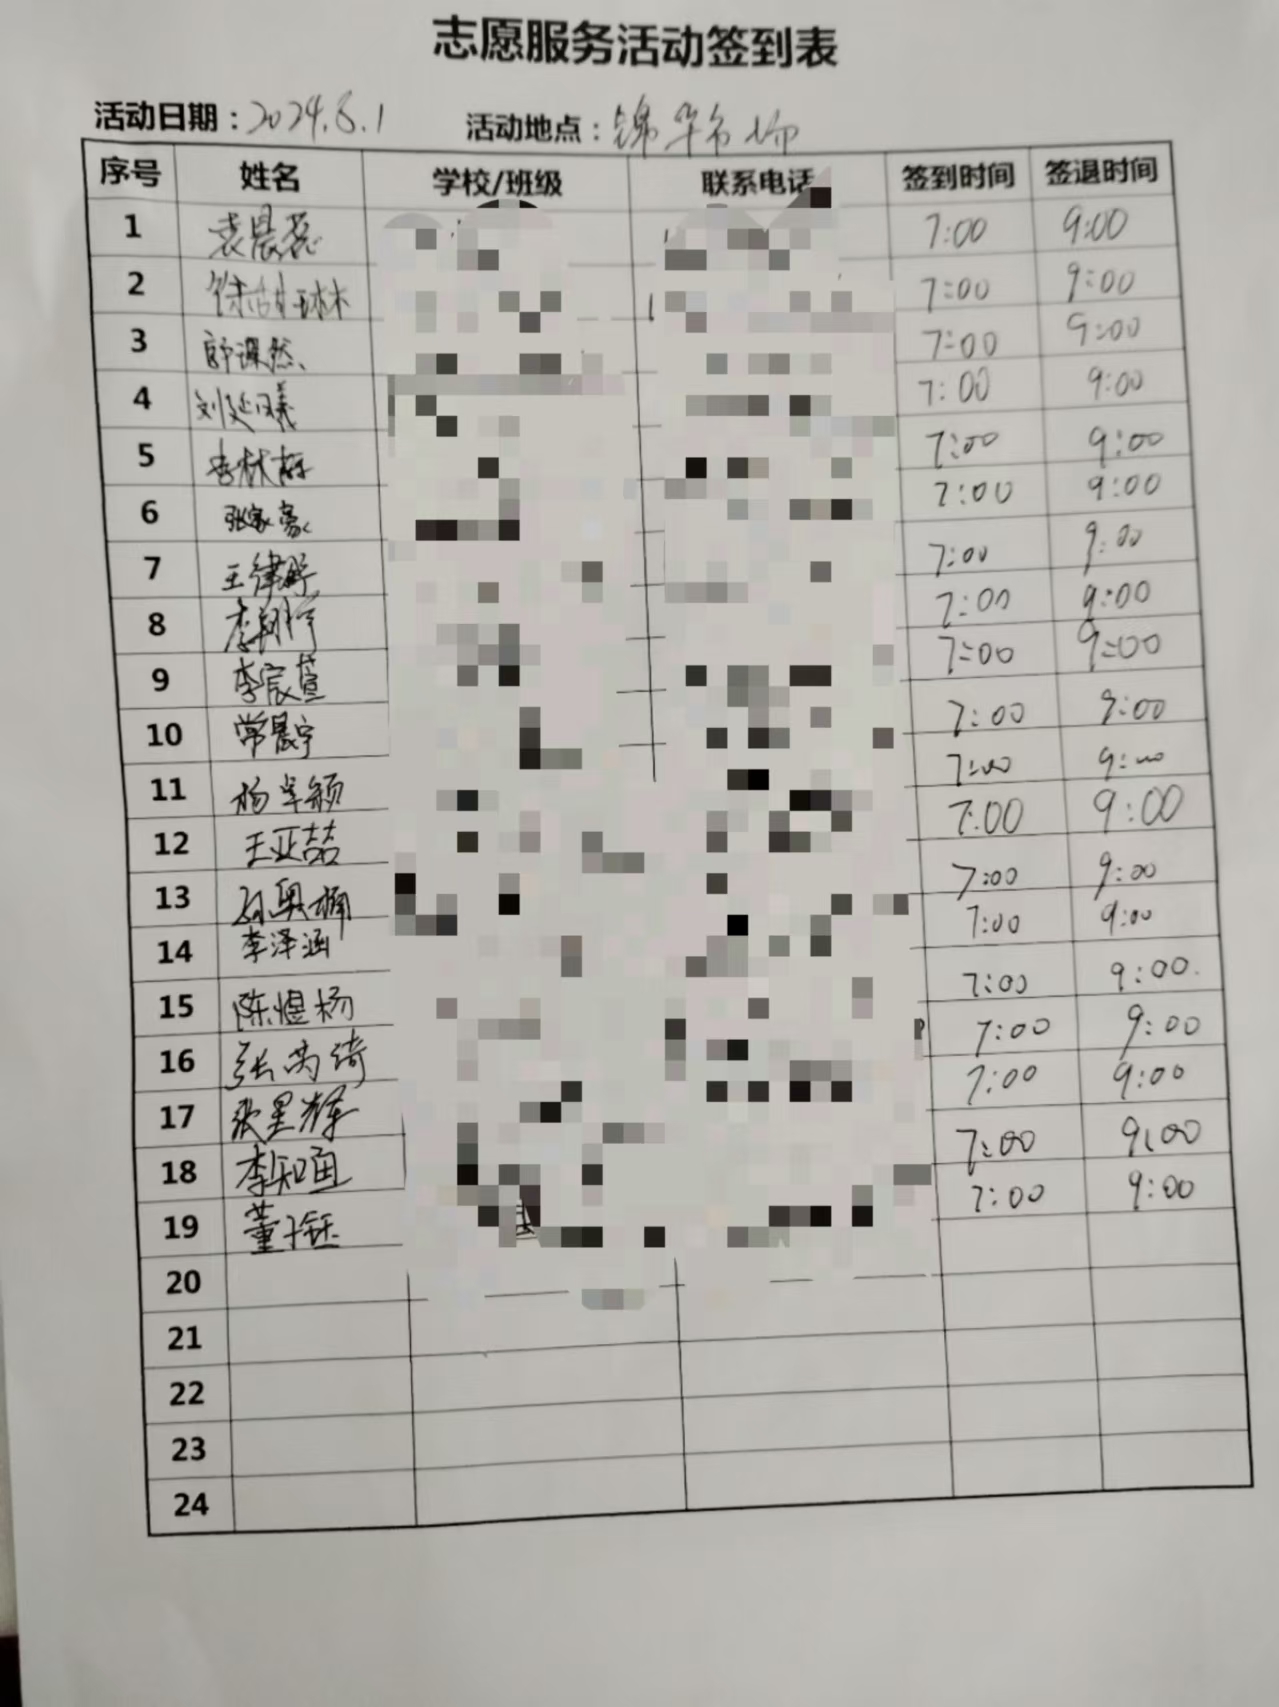 志愿服务活动签到表
活动日期：2024.6.1 活动地点：锦华市场
序号 姓名 学校/班级 联系电话 签到时间 签退时间
1 袁晨磊 7:00 9:00
2 7:00 9:00
3 7:00 9:00
4 刘延曦 7:00 9:00
5 李林 7:00 9:00
6 张家豪 7:00 9:00
7 王律 7:00 9:00
8 李翔宇 7:00 9:00
9 李宸萱 7:00 9:00
10 常晨宇 7:00 9:00
11 杨芈颖 7:00 9:00
12 王亚喆 7:00 9:00
13 7:00 9:00
14 李泽涵 7:00 9:00
15 陈煜杨 7:00 9:00.
16 张芮绮 7:00 9:00
17 张星辉 7:00 9:00
18 李知通 7:00 9:00
19 董子钰 7:00 9:00
20
21
22
23
24